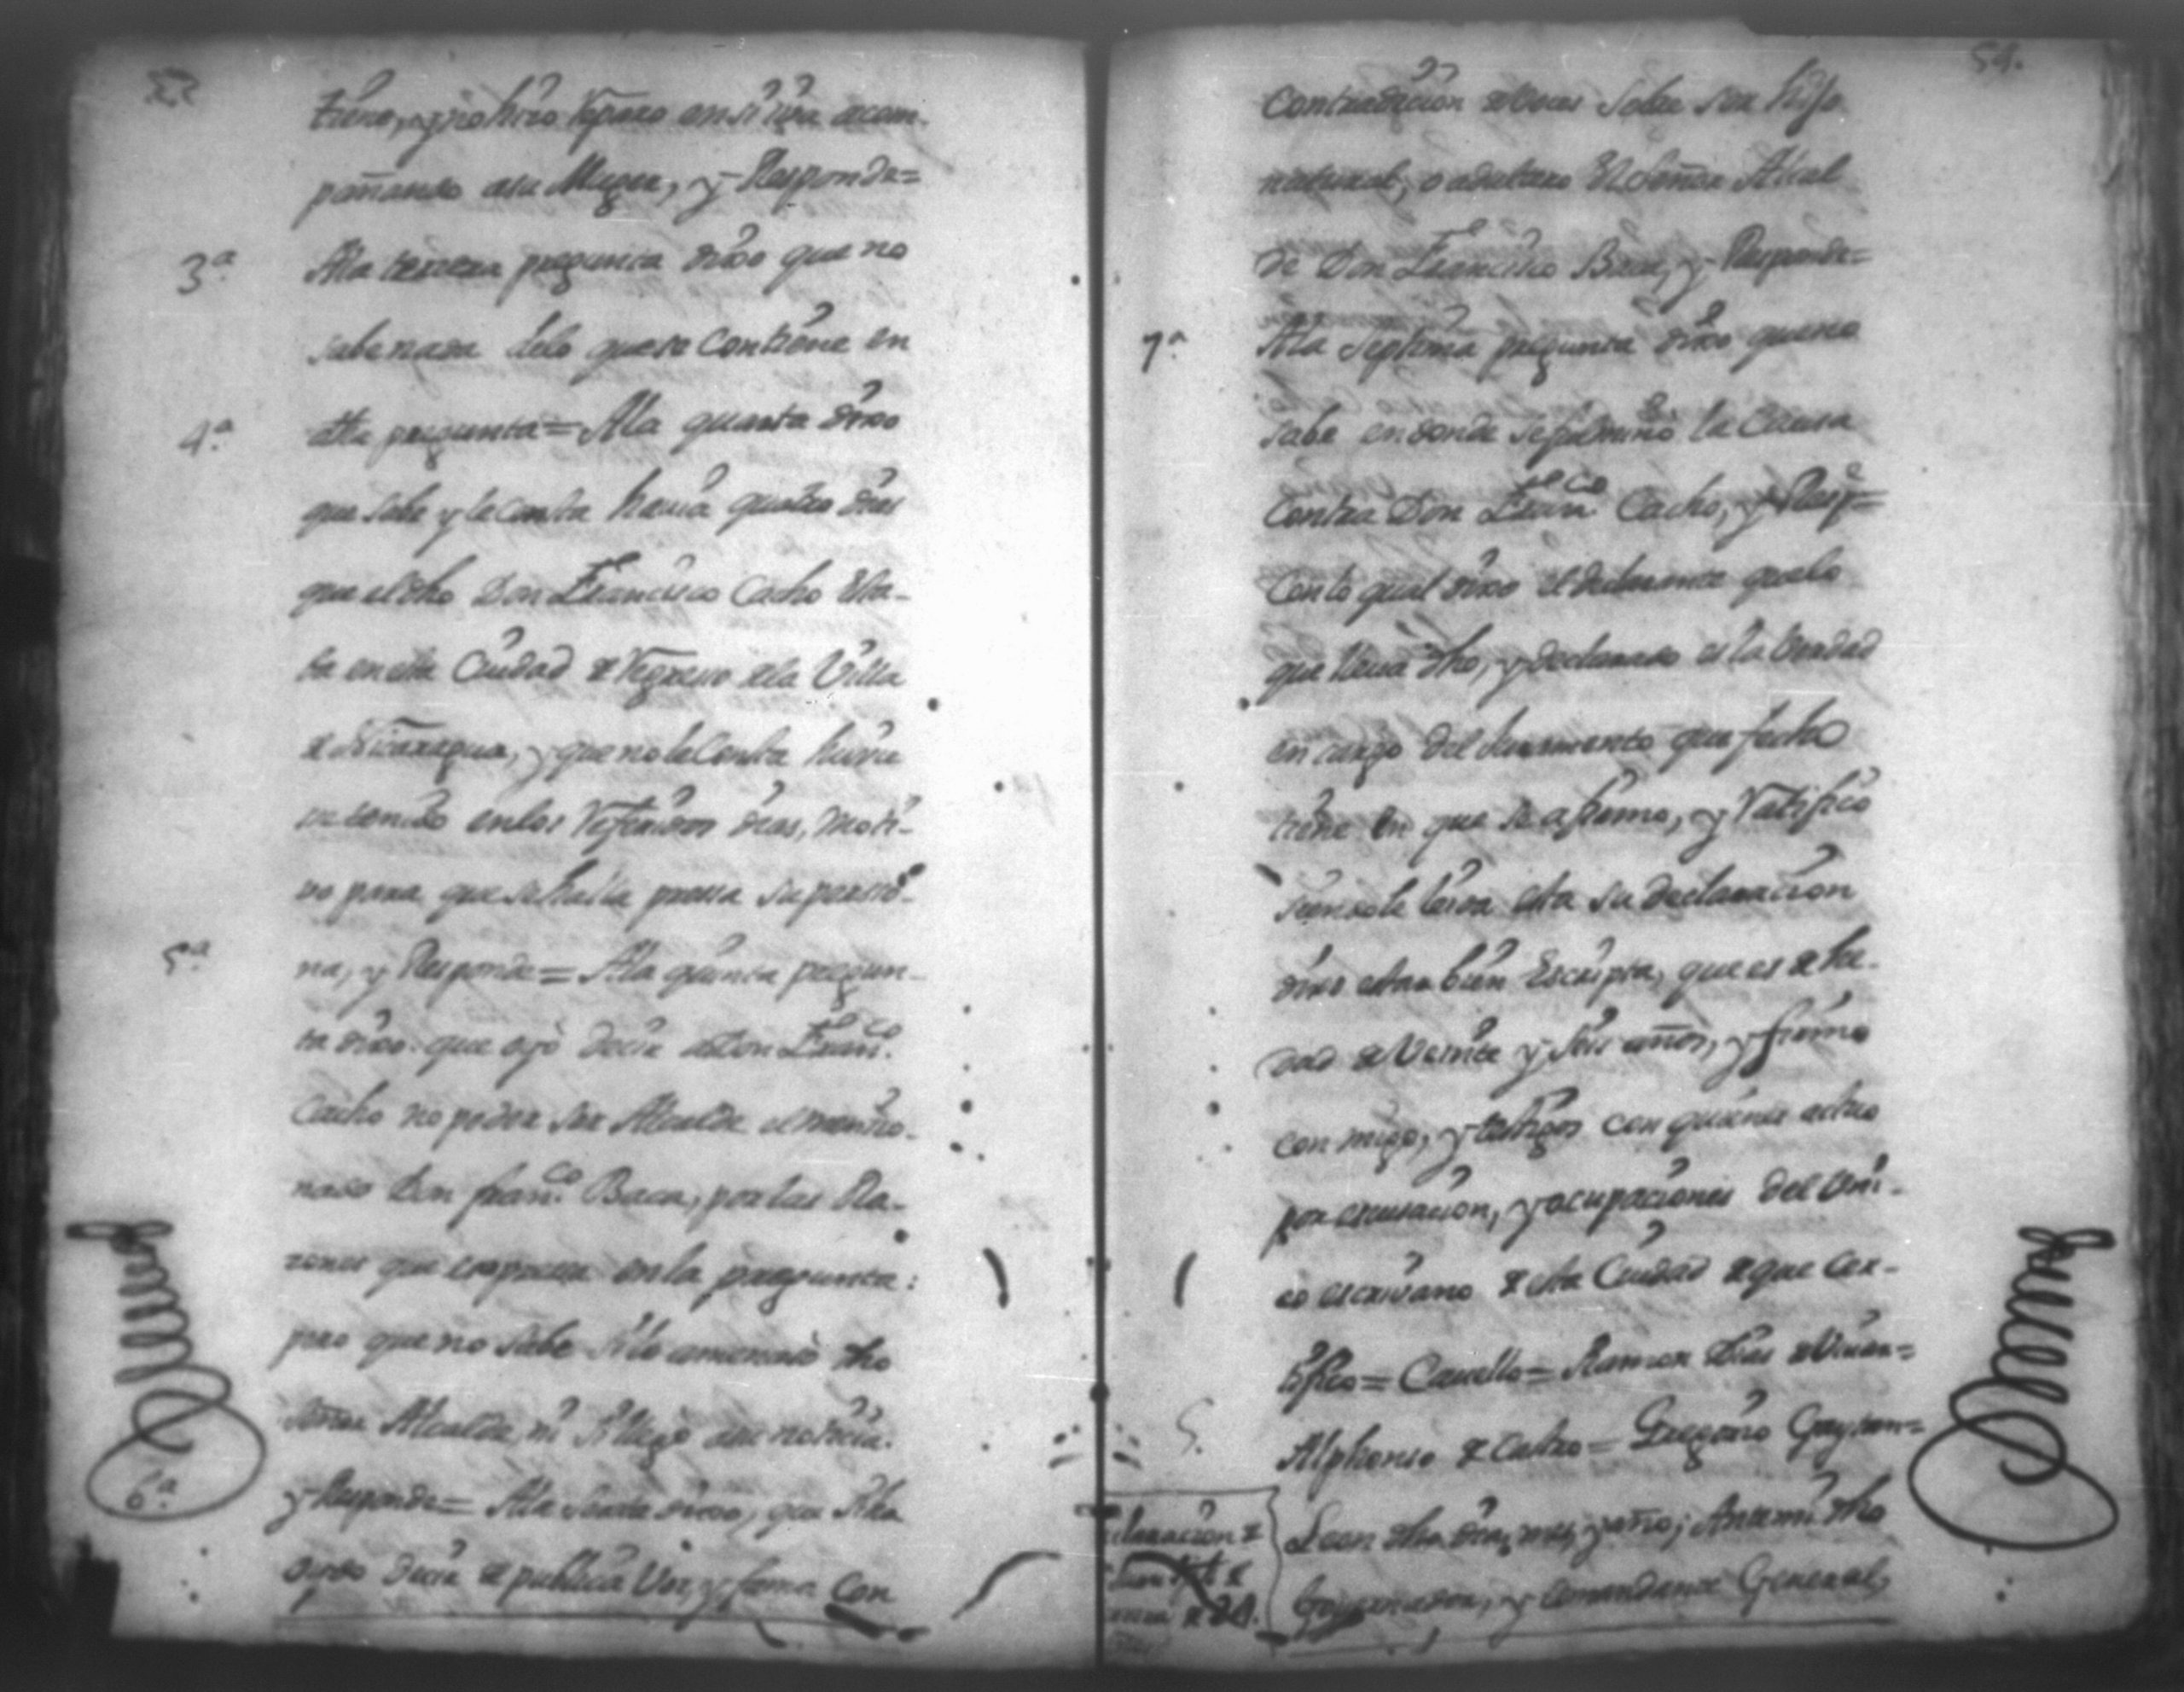 tiene, y no hizo reparo en si iva acom-
pañando a su Muger, y Responde=
3ª. A la tercera pregunta dixo que no
sabe nada de lo que se Contiene en
4ª. esta pregunta= A la quarta dixo
que sabe y le Consta havia quatro dias
que el dho Don Francisco Cacho Esta-
ba en esta Ciudad de regreso de la Villa
de Nicaragua, y que no le Consta huvie
se tenido en los referidos dias, moti-
vo para que se halla pressa su perso-
5ª. na, y Responde= A la quinta pregun-
ta dixo que oyò decir a Don Franco.
Cacho no poder ser Alcalde el mencio-
nado Don franco. Baca, por las Ra-
zones que expressa en la pregunta:
pero que no sabe si lo amenazò dho
Señor Alcalde, ni si llegò a su noticia.
6ª. y Responde= A la sexta dixo, que si ha
oydo decir de publica Voz, y fama Con
54.
Contradicion de Voces sobre ser hijo
natural, o adultero El Señor Alcal
de Don Francisco Baca, y Responde=
7ª. A la Septima pregunta dixo que no
sabe en donde se fulminò la Causa
Contra Don Franco. Cacho, y Resp.e=
Con lo qual dixo el declarante que lo
que lleva dho, y declarado es la Verdad
en cargo del Juramento que fecho
tiene en que se afirmo, y ratifico
siendole leida esta su declaracion
dixo estar bien Escripta, que es de he-
dad de Veinte y Seis años, y firmo
con migo, y testigos con quienes actuo
por escusacion, y ocupaciones del Vni-
co escrivano de esta Ciudad de que Cer-
tifico= Cavello= Ramon Dias de Vivar=
Alphonso de Castro= Gregorio Gaytan=
claracion de
Leon dha dia, mes, y año; Ante mi dho
Governador, y Comandante General,